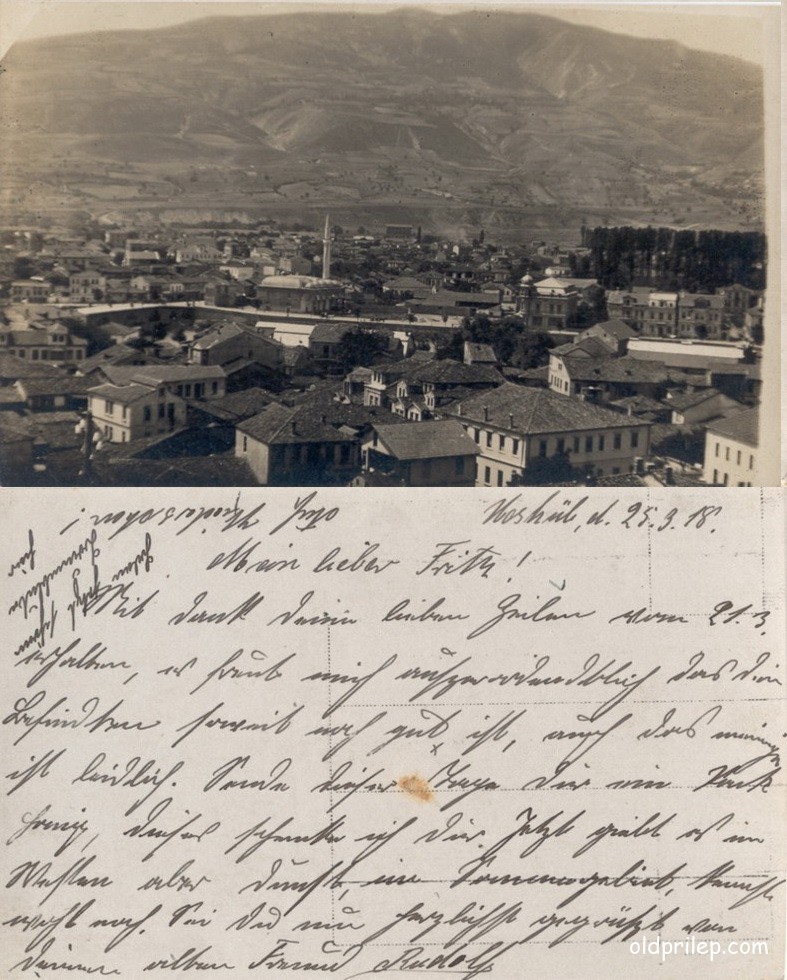 Üsküb, d. 25.3.18.
Mein lieber Fritz!
Mit Dank deine lieben Zeilen vom 21.3.
erhalten, es freut mich ausserordendtlich das dein
Befindten soweit noch gut ist, auch das meinige
ist leidlich. Sende dieser Tage dir ein Pack
Honig, dieses schenke ich dir. Jetzt giebt es im
Westen aber Dunst, im Sommegebiet, kennst
wohl noch. Sei du nun herzlichst gegrüßt von
deinem alten Freund Rudolf
oldprilep.com